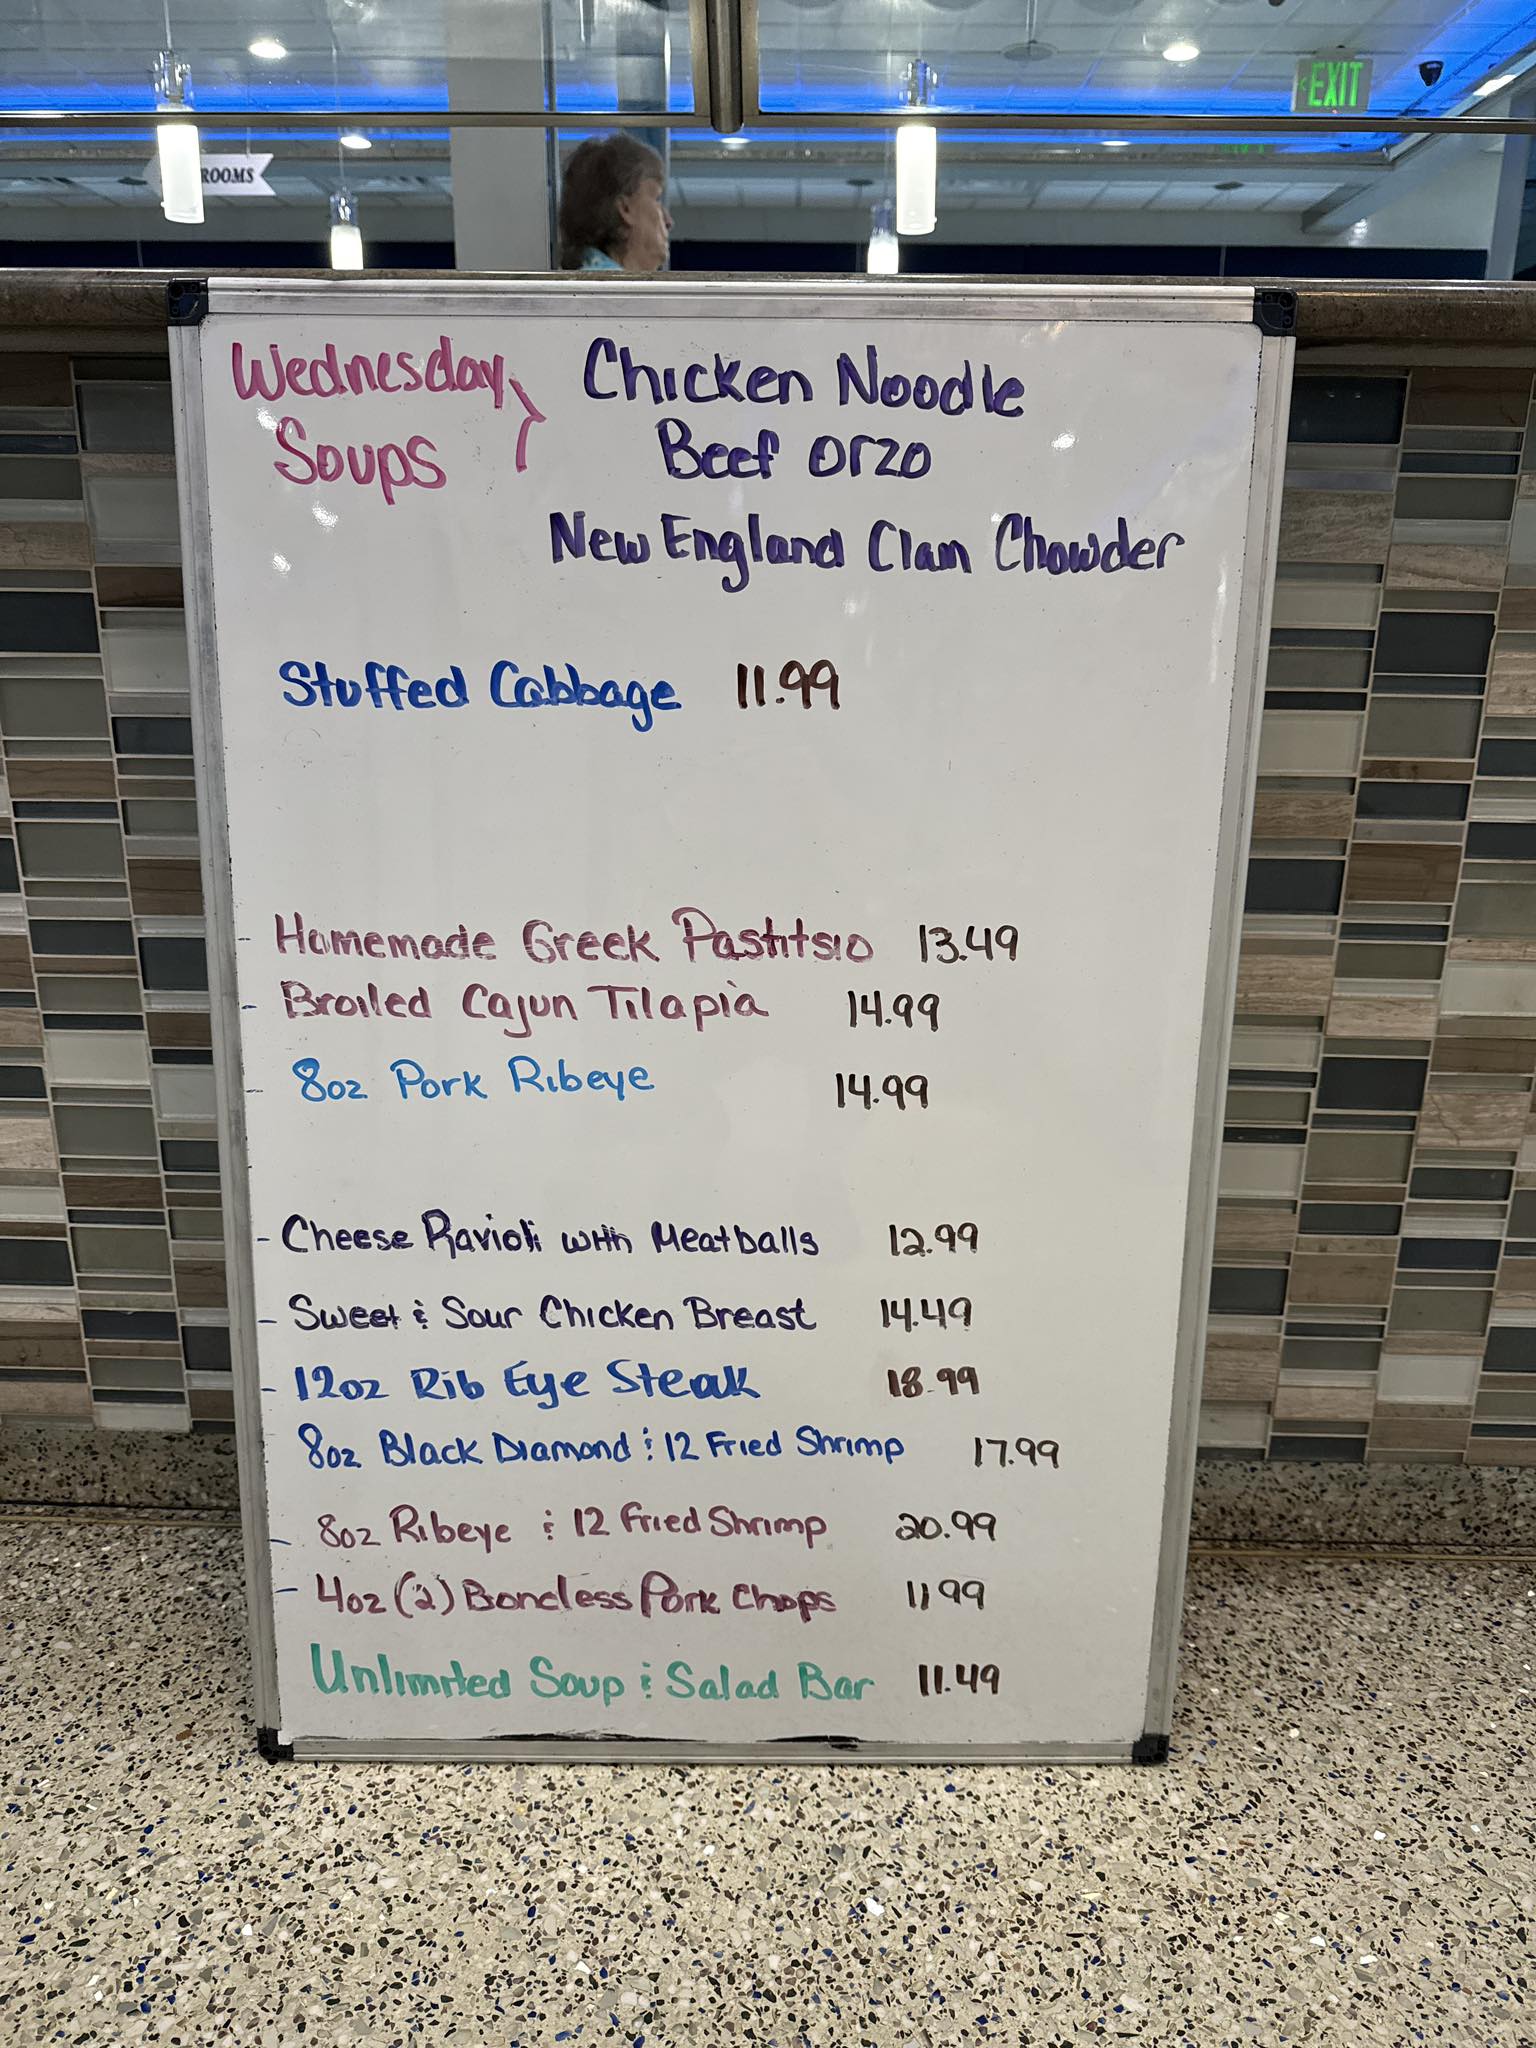 EXIT
ROOMS
Wednesday Soups
Chicken Noodle
Beef Orzo
New England Clam Chowder
Stuffed Cabbage 11.99
- Homemade Greek Pastitsio 13.49
- Broiled Cajun Tilapia 14.99
- 8oz Pork Ribeye 14.99
- Cheese Ravioli with Meatballs 12.99
- Sweet & Sour Chicken Breast 14.49
- 12oz Rib Eye Steak 18.99
8oz Black Diamond & 12 Fried Shrimp 17.99
- 8oz Ribeye & 12 Fried Shrimp 20.99
- 4oz (2) Boneless Pork Chops 11.99
Unlimited Soup & Salad Bar 11.49